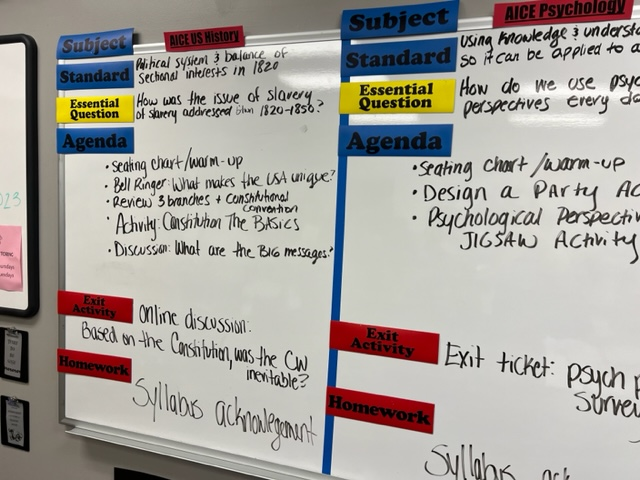 Subject
AICE US History
Standard
Political system & balance of
sectional interests in 1820
Essential
Question
How was the issue of slavery
of slavery addressed 1820-1850?
Agenda
• Seating chart/warm-up
• Bell Ringer: What makes the USA unique?
• Review 3 branches + Constitutional
convention
• Activity: Constitution The BASICS
• Discussion: What are the BIG messages?
Exit
Activity
Online discussion:
Based on the Constitution, was the CW
inevitable?
Homework
Syllabus acknowlegement
Subject
AICE Psychology
Standard
Using knowledge & understa
so it can be applied to a
Essential
Question
How do we use psyc
perspectives every da
Agenda
• Seating chart/warm-up
• Design a Party Ac
• Psychological Perspectiv
JIGSAW Activity
Exit
Activity
Exit ticket: psych p
Survey
Homework
Syllabus ack
023